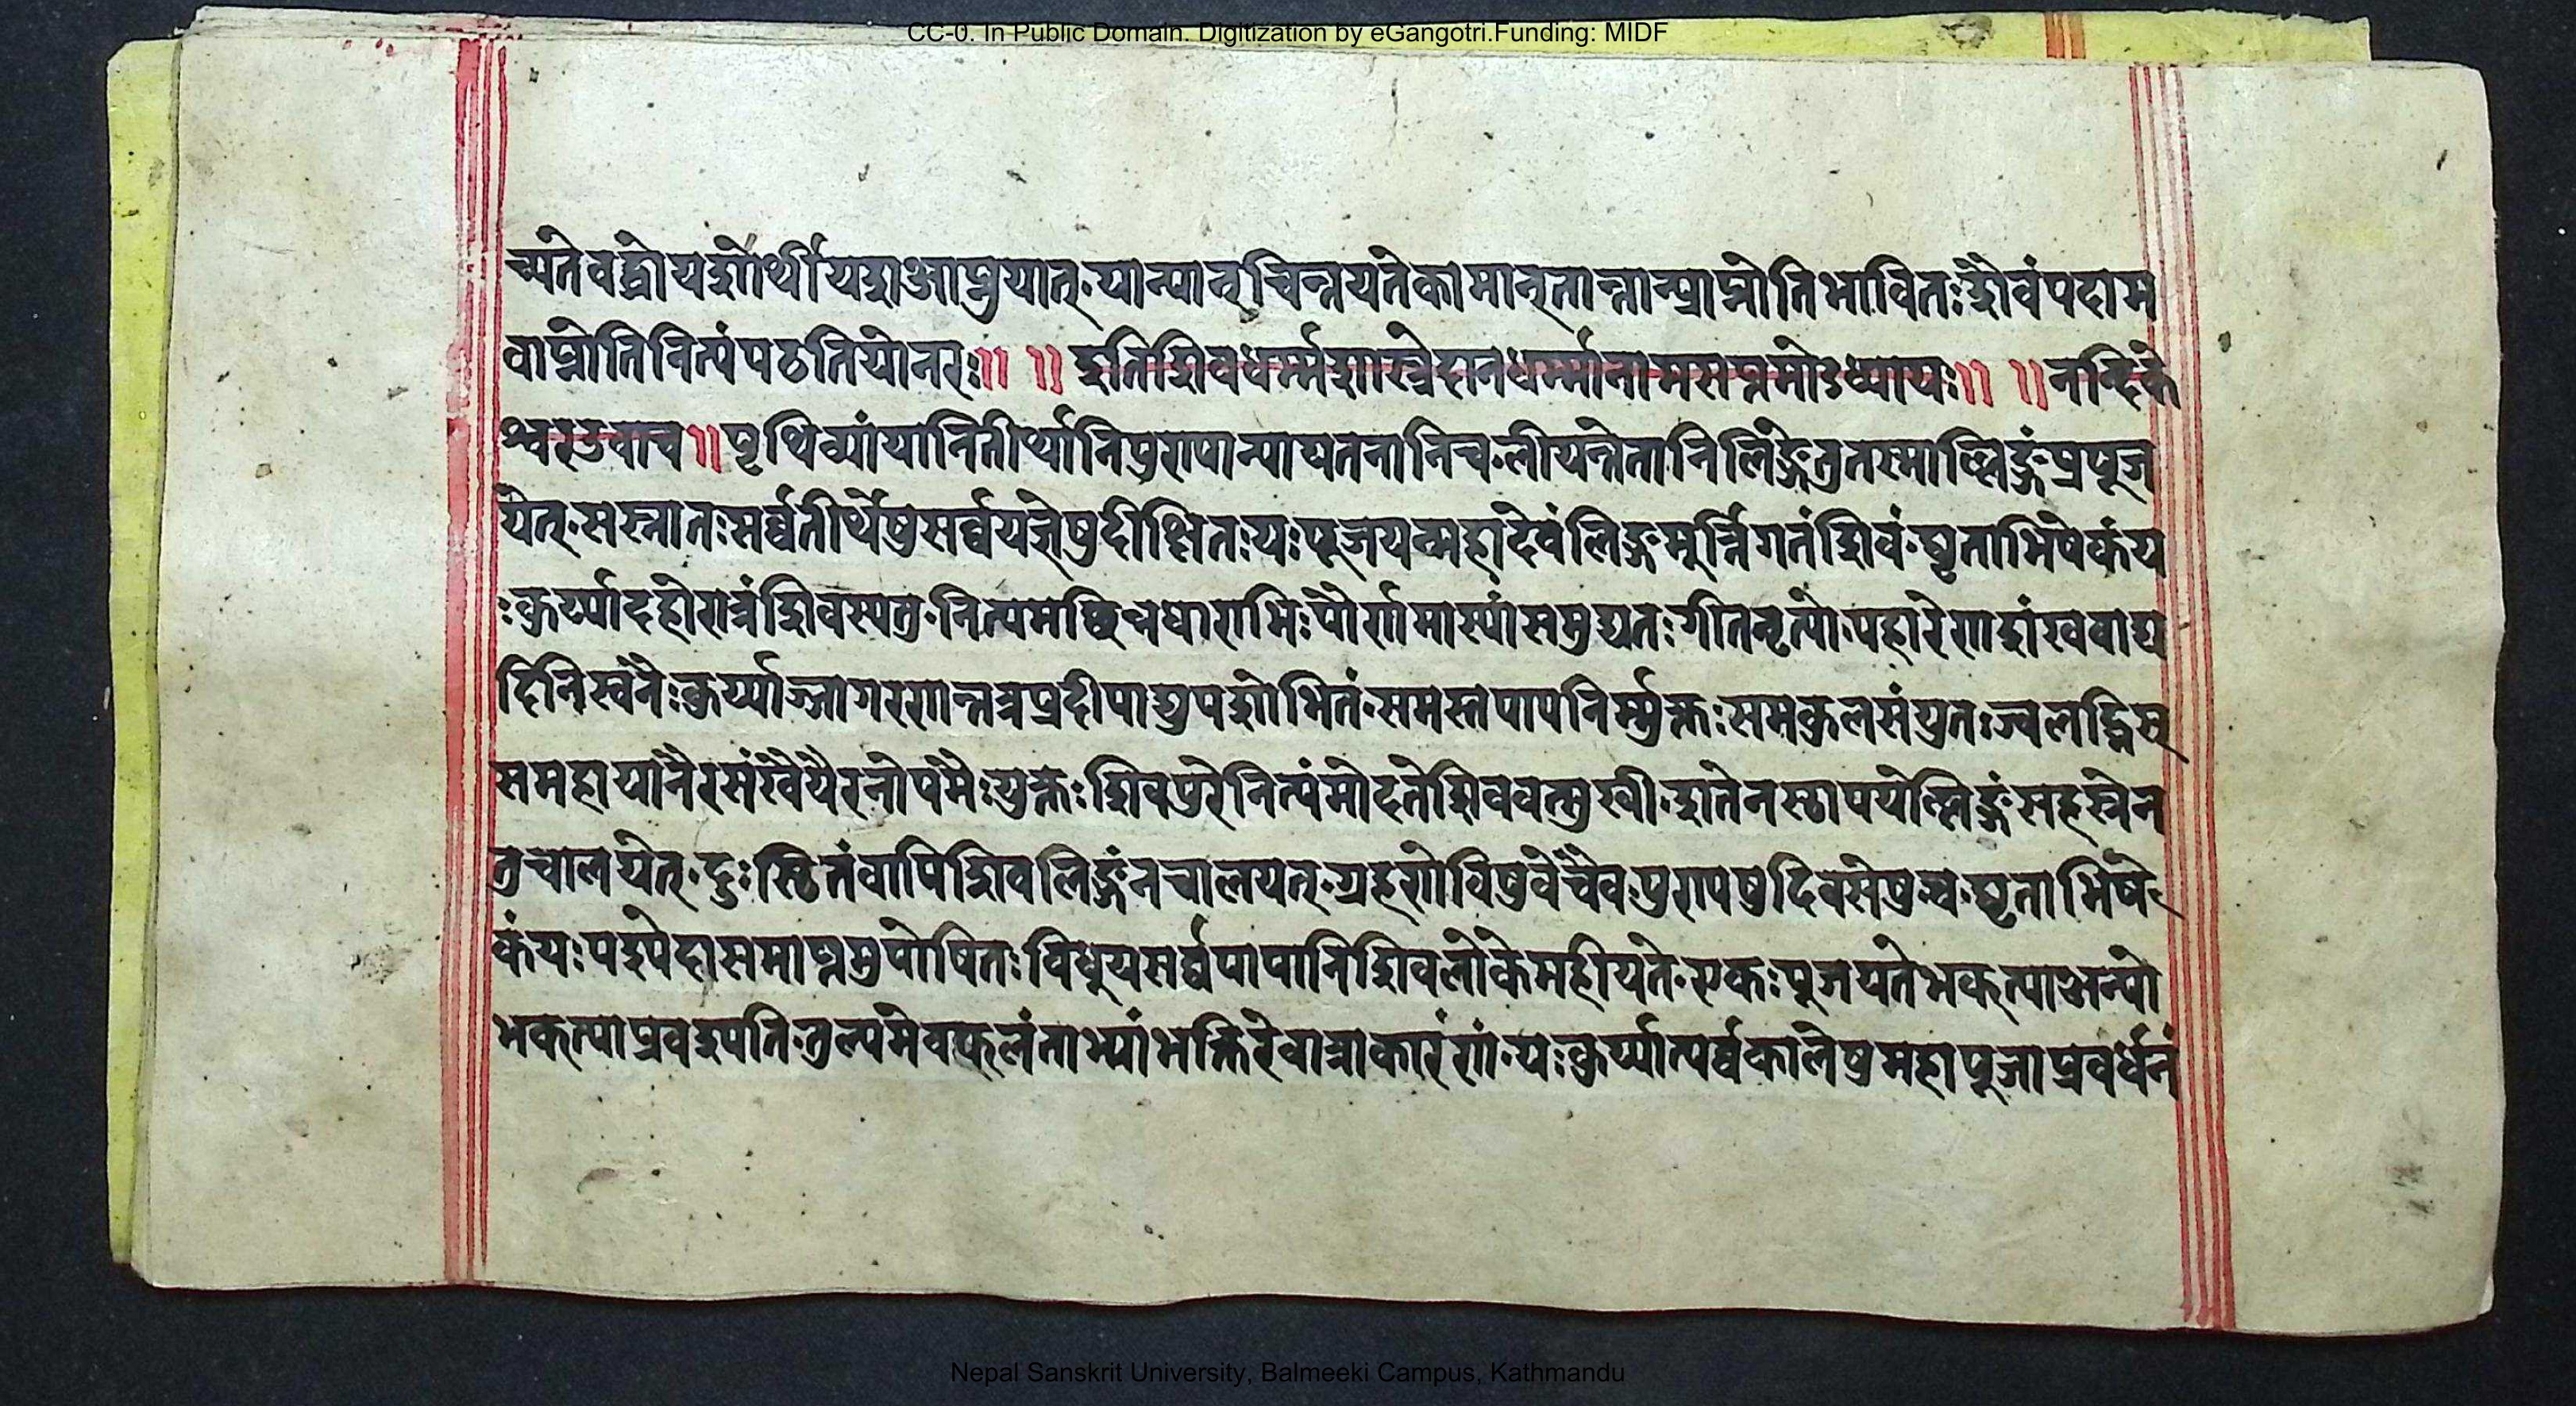 CC-0. In Public Domain. Digitization by eGangotri.Funding: MIDF
च्यते वद्धो यशोर्थी यश आप्नुयात् यान्यान् चिन्तयते कामान् तान्तान्प्राप्नोति भावितः शैवं पदाम
वाप्नोति नित्यं पठति यो नरः॥ ॥ इति शिवधर्म्मशास्त्रे दानधर्म्मानाम सप्तमोऽध्यायः॥ ॥नन्दिके
श्वर उवाच॥पृथिव्यां यानि तीर्थानि पुण्यान्यायतनानि च लीयन्ते तानि लिङ्गे तु तस्माल्लिङ्गं प्रपूज
येत् स स्नातः सर्व्वतीर्थेषु सर्व्वयज्ञेषु दीक्षितः यः पूजयन्महादेवं लिङ्गमूर्त्तिगतं शिवं घृताभिषेकं य
ः कुर्य्यादहोरात्रं शिवस्य तु नित्यमछिन्नधाराभिः पौर्णमास्यां समुद्यतः गीतनृत्योपहारेण शंखवाद्य
दिनिस्वनैः कुर्य्याज्जागरणन्तत्र प्रदीपाद्युपशोभितं समस्तपापनिर्म्मुक्तः समकुलसंयुत ज्वलद्भिस्
स महायानैरसंख्यैयैरनोपमैः युक्तः शिवपुरे नित्यं मोदते शिववत्सुखी शतेन स्छापयेल्लिङ्गं सहस्रेन
तु चालयेत् दुःस्छितं वापि शिवलिङ्गं न चालयत् ग्रहणे विषुवे चैव पुण्यषु दिवसेषु च घृताभिषे
कं यः पश्येदासमाप्तमुपोषितः विधुय सर्व्वपापानि शिवलोके महीयते एकः पूजयते भक्त्या अन्यो
भक्त्या प्रवश्यति तुल्यमेव फलं ताभ्यां भक्तिरेवात्राकारणं यः कुर्य्यात्पर्व्वकालेषु महापूजाप्रवर्धनं
Nepal Sanskrit University, Balmeeki Campus, Kathmandu